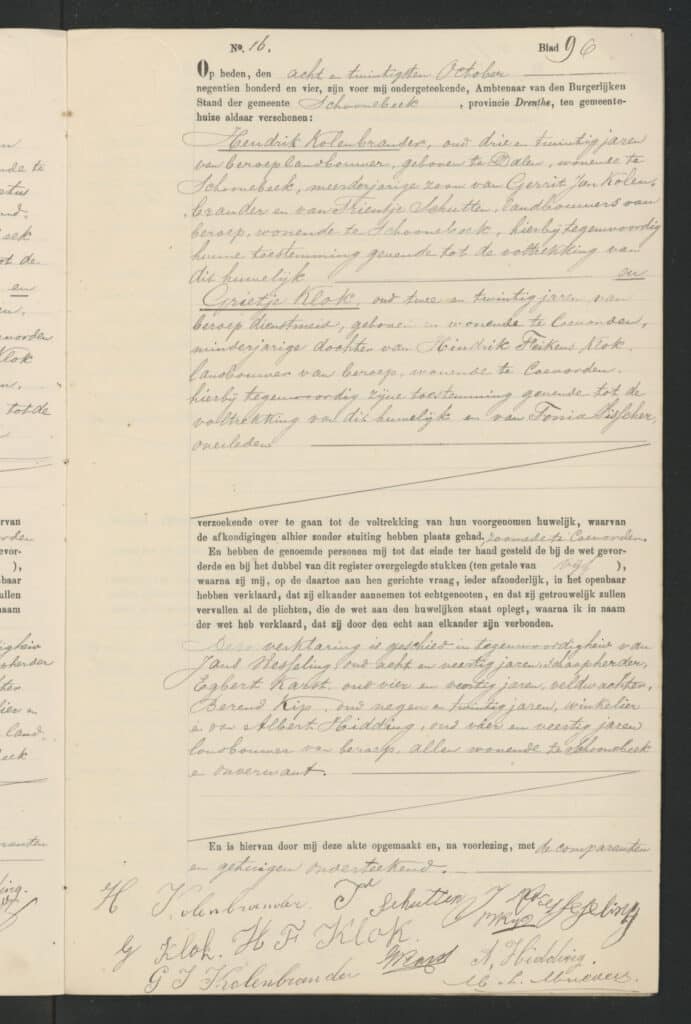 No. 16.
Blad 96
Op heden, den acht en twintigsten October
negentien honderd en vier, zijn voor mij ondergeteekende, Ambtenaar van den Burgerlijken
Stand der gemeente Schoonebeek , provincie Drenthe, ten gemeente-
huize aldaar verschenen:
Hendrik Kolenbrander, oud drie en twintig jaren
van beroep landbouwer, geboren te Dalen, wonende te
Schoonebeek, meerderjarige zoon van Gerrit Jan Kolen-
brander en van Trientje Schutten, landbouwers van
beroep, wonende te Schoonebeek, hierbij tegenwoordig
hunne toestemming gevende tot de voltrekking van
dit huwelijk en
Grietje Klok, oud twee en twintig jaren van
beroep dienstmeid, geboren en wonende te Coevorden,
minderjarige dochter van Hindrik Feikens Klok
landbouwer van beroep, wonende te Coevorden,
hierbij tegenwoordig zijne toestemming gevende tot de
voltrekking van dit huwelijk en van
overleden
verzoekende over te gaan tot de voltrekking van hun voorgenomen huwelijk, waarvan
de afkondigingen alhier zonder stuiting hebben plaats gehad, zoomede te Coevorden.
En hebben de genoemde personen mij tot dat einde ter hand gesteld de bij de wet gevor-
derde en bij het dubbel van dit register overgelegde stukken (ten getale van vijf ),
waarna zij mij, op de daartoe aan hen gerichte vraag, ieder afzonderlijk, in het openbaar
hebben verklaard, dat zij elkander aannemen tot echtgenooten, en dat zij getrouwelijk zullen
vervullen al de plichten, die de wet aan den huwelijken staat oplegt, waarna ik in naam
der wet heb verklaard, dat zij door den echt aan elkander zijn verbonden.
Deze verklaring is geschied in tegenwoordigheid van
Jans Wesseling, oud acht en veertig jaren, schaapherder,
Egbert Karst, oud vier en veertig jaren, veldwachter,
Berend Kip, oud negen en twintig jaren, winkelier
en van Albert Hidding, oud vier en veertig jaren
landbouwer van beroep, allen wonende te Schoonebeek
en onverwant.
En is hiervan door mij deze akte opgemaakt en, na voorlezing, met de comparanten
en getuigen onderteekend.
H Kolenbrander Tr Schutten J Wesseling
B Kip
G Klok. H F Klok. E Karst A. Hidding.
G J Kolenbrander